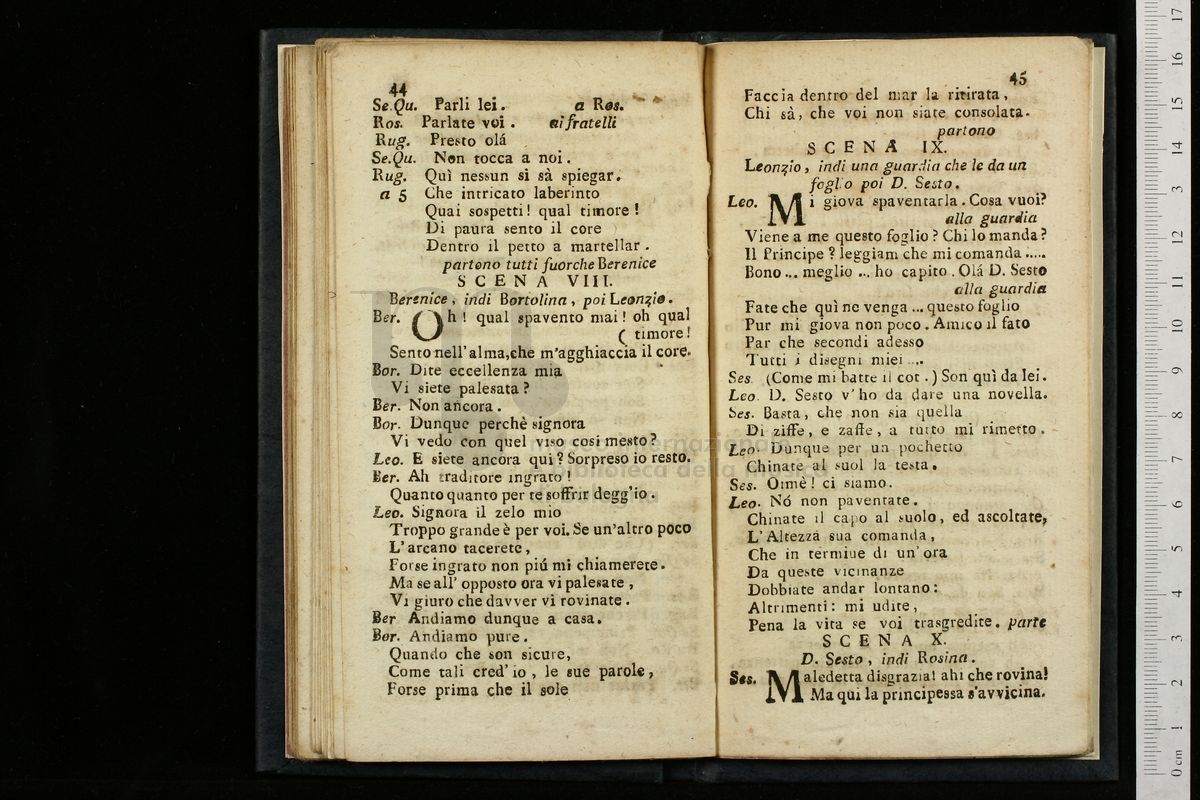 44
Se.Qu. Parli lei. a Ros.
Ros. Parlate voi. ai fratelli
Rug. Presto olá
Se.Qu. Non tocca a noi.
Rug. Quì nessun si sà spiegar.
a 5 Che intricato laberinto
Quai sospetti! qual timore!
Di paura sento il core
Dentro il petto a martellar.
partono tutti fuorche Berenice
SCENA VIII.
Berenice, indi Bortolina, poi Leonzio.
Ber. Oh! qual spavento mai! oh qual
( timore!
Sento nell'alma, che m'agghiaccia il core.
Bor. Dite eccellenza mia
Vi siete palesata?
Ber. Non ancora.
Bor. Dunque perchè signora
Vi vedo con quel viso così mesto?
Leo. E siete ancora qui? Sorpreso io resto.
Ber. Ah traditore ingrato!
Quanto quanto per te soffrir degg'io.
Leo. Signora il zelo mio
Troppo grande è per voi. Se un'altro poco
L'arcano tacerete,
Forse ingrato non piú mi chiamerete.
Ma se all' opposto ora vi palesate,
Vi giuro che davver vi rovinate.
Ber Andiamo dunque a casa.
Bor. Andiamo pure.
Quando che son sicure,
Come tali cred' io, le sue parole,
Forse prima che il sole
45
Faccia dentro del mar la ritirata,
Chi sà, che voi non siate consolata.
partono
SCENA IX.
Leonzio, indi una guardia che le da un
foglio poi D. Sesto.
Leo. Mi giova spaventarla. Cosa vuoi?
alla guardia
Viene a me questo foglio? Chi lo manda?
Il Principe? leggiam che mi comanda.....
Bono... meglio... ho capito. Olá D. Sesto
alla guardia
Fate che quì ne venga... questo foglio
Pur mi giova non poco. Amico il fato
Par che secondi adesso
Tutti i disegni miei....
Ses. (Come mi batte il cor.) Son quì da lei.
Leo. D. Sesto v'ho da dare una novella.
Ses. Basta, che non sia quella
Di ziffe, e zaffe, a tutto mi rimetto.
Leo. Dunque per un pochetto
Chinate al suol la testa.
Ses. Oimè! ci siamo.
Leo. Nó non paventate.
Chinate il capo al suolo, ed ascoltate,
L'Altezza sua comanda,
Che in termine di un'ora
Da queste vicinanze
Dobbiate andar lontano:
Altrimenti: mi udite,
Pena la vita se voi trasgredite. parte
SCENA X.
D. Sesto, indi Rosina.
Ses. Maledetta disgrazia! ahi che rovina!
Ma qui la principessa s'avvicina.